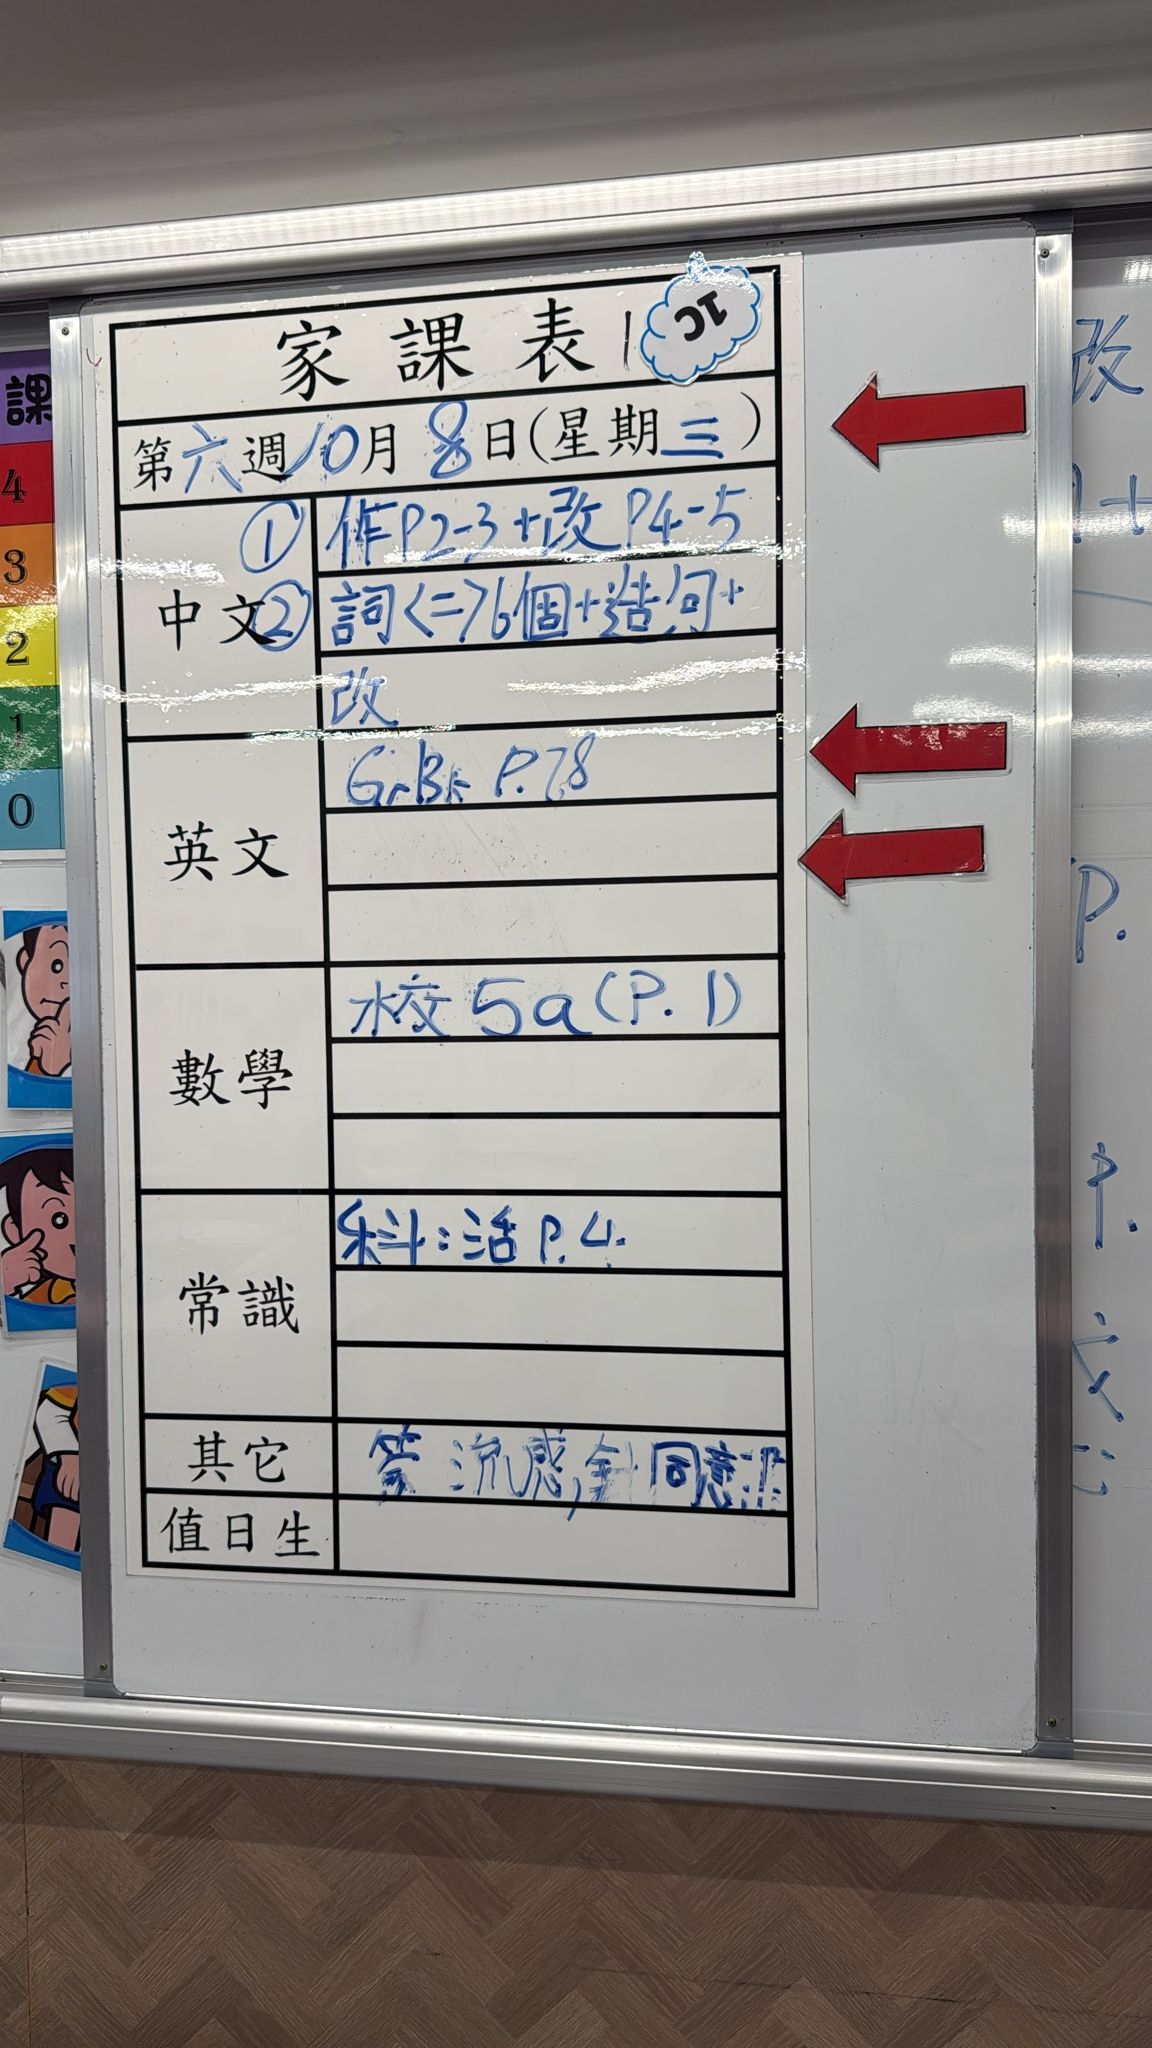 家課表
1C
第六週10月8日(星期三)
中文
① 作P2-3+改P4-5
② 詞<二>6個+造句+
改
英文
Gr.Bk P.7,8
數學
校 5a(P.1)
常識
科:活 P.4.
其它
簽 流感針同意
值日生
課
4
3
2
1
0
改
+
P.
P.